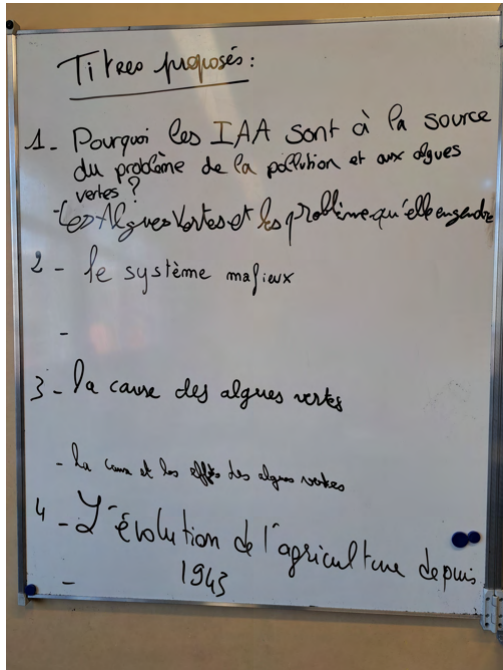 Titres proposés :
1 - Pourquoi les IAA sont à la source
du problème de la pollution et aux algues
vertes ?
- Les Algues Vertes et les problème qu'elle engendre
2 - le système mafieux
-
3 - la cause des algues vertes
- La cause et les effets des algues vertes
4 - L'évolution de l'agriculture depuis
- 1943